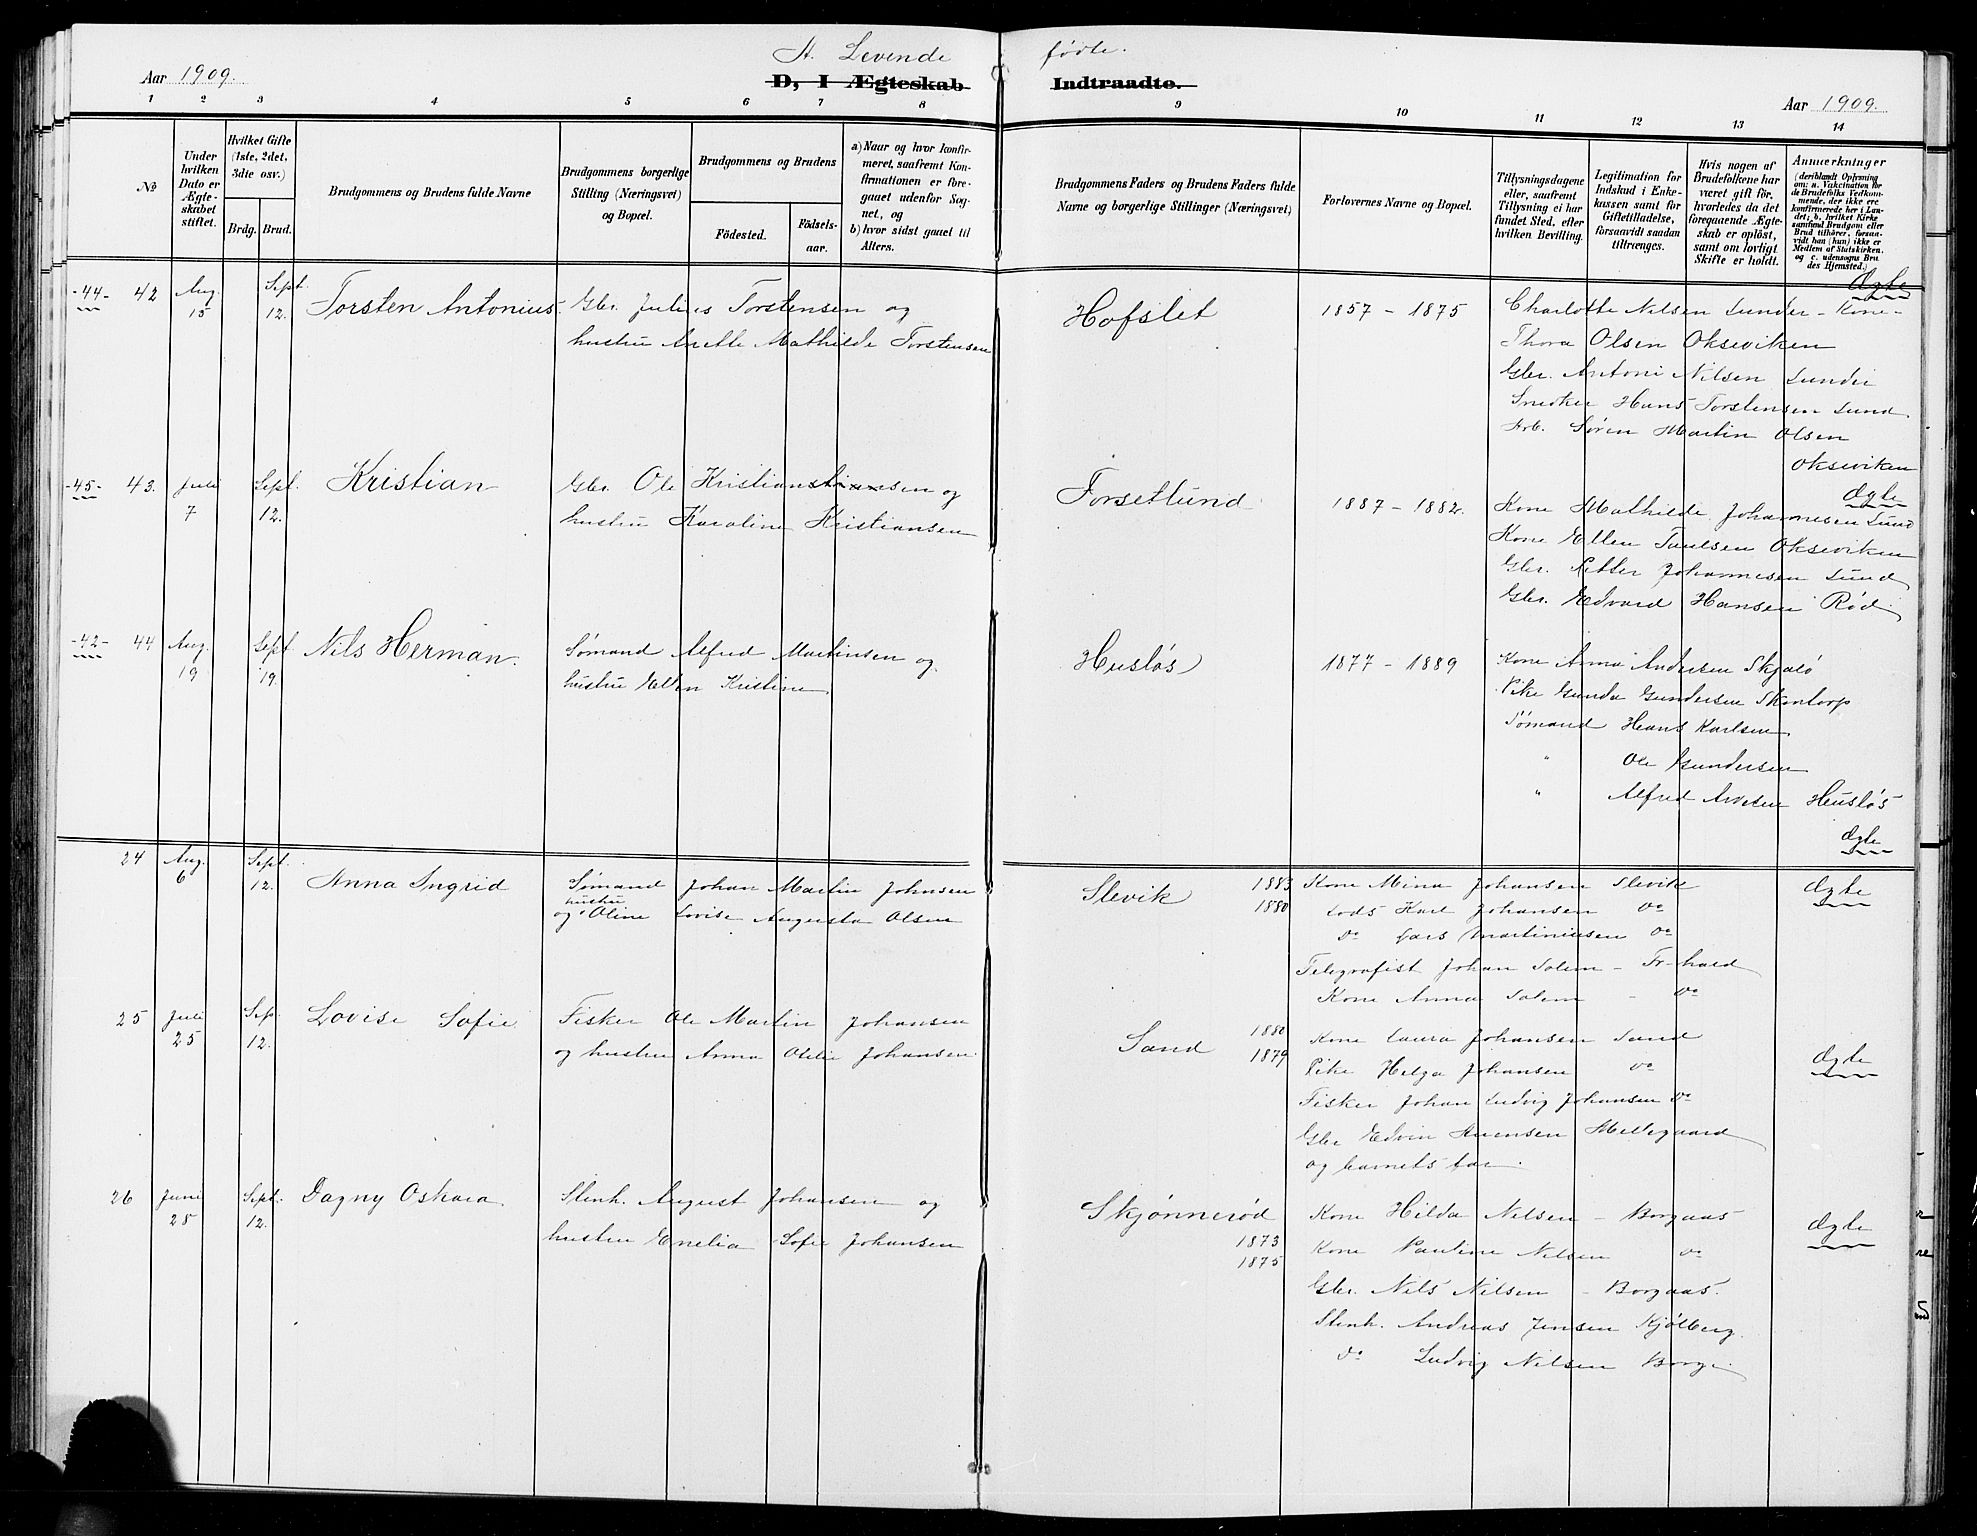 A. Levende fødte.
Aar 1909.
D, I Ægteskab Indtraadte.
Aar 1909.
1 2 3 4 5 6 7 8 9 10 11 12 13 14
No
Under hvilken Dato er Ægteskabet stiftet.
Hvilket Gifte (1ste, 2det, 3die osv.)
Brdg. Brud.
Brudgommens og Brudens fulde Navne
Brudgommens borgerlige Stilling (Næringsvei) og Bopæl.
Brudgommens og Brudens
Födested.
Födselsaar.
a) Naar og hvor konfirmeret, saafremt Konfirmationen er foregaaet udenfor Sognet, og
b) hvor sidst gaaet til Alters.
Brudgommens Faders og Brudens Faders fulde Navne og borgerlige Stillinger (Næringsvei)
Forlovernes Navne og Bopæl.
Tillysningsdagene eller, saafremt Tillysning ei har fundet Sted, efter hvilken Bevilling.
Legitimation for Indskud i Enkekassen samt for Giftetilladelse, forsaavidt saadan tiltrænges.
Hvis nogen af Brudefolkene har været gift før, hvorledes da det foregaaende Ægteskab er opløst, samt om lovligt Skifte er holdt.
Anmærkninger (deriblandt Oplysning om: a. Vakcination for de Brudefolks Vedkommende, der ikke ere konfirmerede her i Landet; b. hvilket Kirkesamfund Brudgom eller Brud tilhører, forsaavidt han (hun) ikke er Medlem af Statskirken, og c. udensogns Brudes Hjemsted.)
-44- 42 Aug. 15 Sept. 12. Torsten Antonius. Gbr. Julius Torstensen og
hustru Anette Mathilde Torstensen
Hofslet 1857 - 1875 Charlotte Nilsen Lunde - Kone - Ægte
Thora Olsen Okseviken
Gbr. Antoni Nilsen Lunde
Snedker Hans Torstensen Lund
Arb. Søren Martin Olsen
Okseviken
-45- 43. Juli 7 Sept. 12. Kristian Gbr. Ole Kristianstiansen og
hustru Karoline Kristiansen
Torsetlund 1887 - 1882. Ægte
Kone Mathilde Johannesen Lund
Kone Ellen Paulsen Okseviken
Gbr. Petter Johannesen Lund
Gbr. Edvard Hansen Rød.
-42- 44 Aug. 19 Sept. 19. Nils Herman. Sømand Alfred Martinsen og
hustru Ellen Kristine
Husløs 1877 - 1889 Kone Anna Andersen Skjælø
Pike Gunda Gundersen Skontorp
Sømand Hans Karlsen
" Ole Gundersen
" Alfred Husløs
Ægte
24 Aug. 6 Sept. 12. Anna Ingrid Sømand Johan Martin Johnsen
og hustru Oline Lovise Augusta Olsen
Slevik 1883 1880 Kone Mina Johansen Slevik Ægte
Lods Karl Johansen do
do Lars Martiniusen do
Telegrafist Johan Solem - Fr-hald
Kone Anna Solem - do
25 Juli 25 Sep. 12. Lovise Sofie. Fisker Ole Martin Johansen
og hustru Anna Otelie Johansen.
Sand 1880 1879 Kone Laura Johansen Sand
Pike Helga Johansen do Ægte
Fisker Johan Ludvig Johansen do
Gbr Edvin Svensen Mellegaard
og barnets far.
26 Juni 28 Sept. 12. Dagny Oskara Stenh. August Johansen og
hustru Emelia Sofie Johansen
Skjønnerød 1873 1875 Kone Hilda Nilsen - Borgaas Ægte
Kone Pauline Nilsen do
Gbr. Nils Nilsen - Borgaas.
Stenh. Andreas Jensen Kjølberg.
do Ludvig Nilsen Borge.